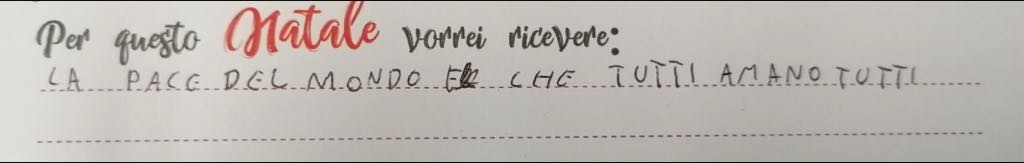 Per questo Natale vorrei ricevere:
LA PACE DEL MONDO E CHE TUTTI AMANO TUTTI